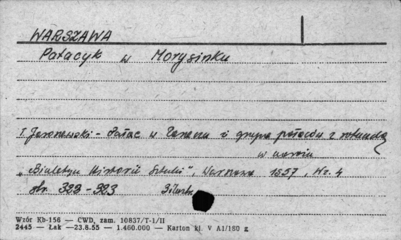 WARSZAWA
Pałacyk w Morysinku
T. Jaroszewski - Pałac w i grupa pałaców z rotundą
w
"Biuletyn Historii Sztuki", Warszawa 1957, Nr. 4
str. 323-393
Wzór Kb-156 — CWD, zam. 10837/T-1/II
2445 — Łak —23.8.55 — 1.460.000 — Karton kl. V A1/180 g